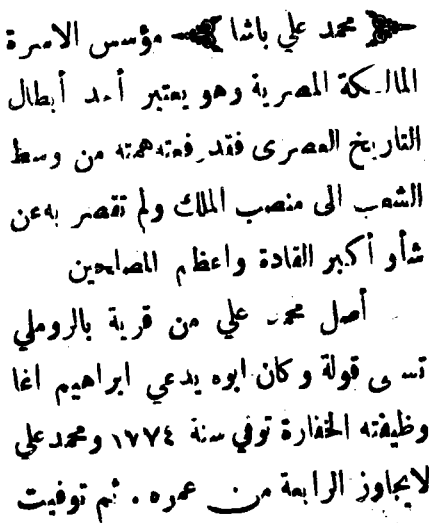 ﴿ محمد علي باشا ﴾ مؤسس الاسرة
المالكة المصرية وهو يعتبر أحد أبطال
التاريخ العصرى فقد رفعته همته من وسط
الشعب الى منصب الملك ولم تقصر به عن
شأو أكبر القادة واعظم المصلحين
أصل محمد علي من قرية بالروملي
تسمى قولة وكان ابوه يدعي ابراهيم اغا
وظيفته الخفارة توفي سنة ١٧٧٤ ومحمد علي
لايجاوز الرابعة من عمره . ثم توفيت